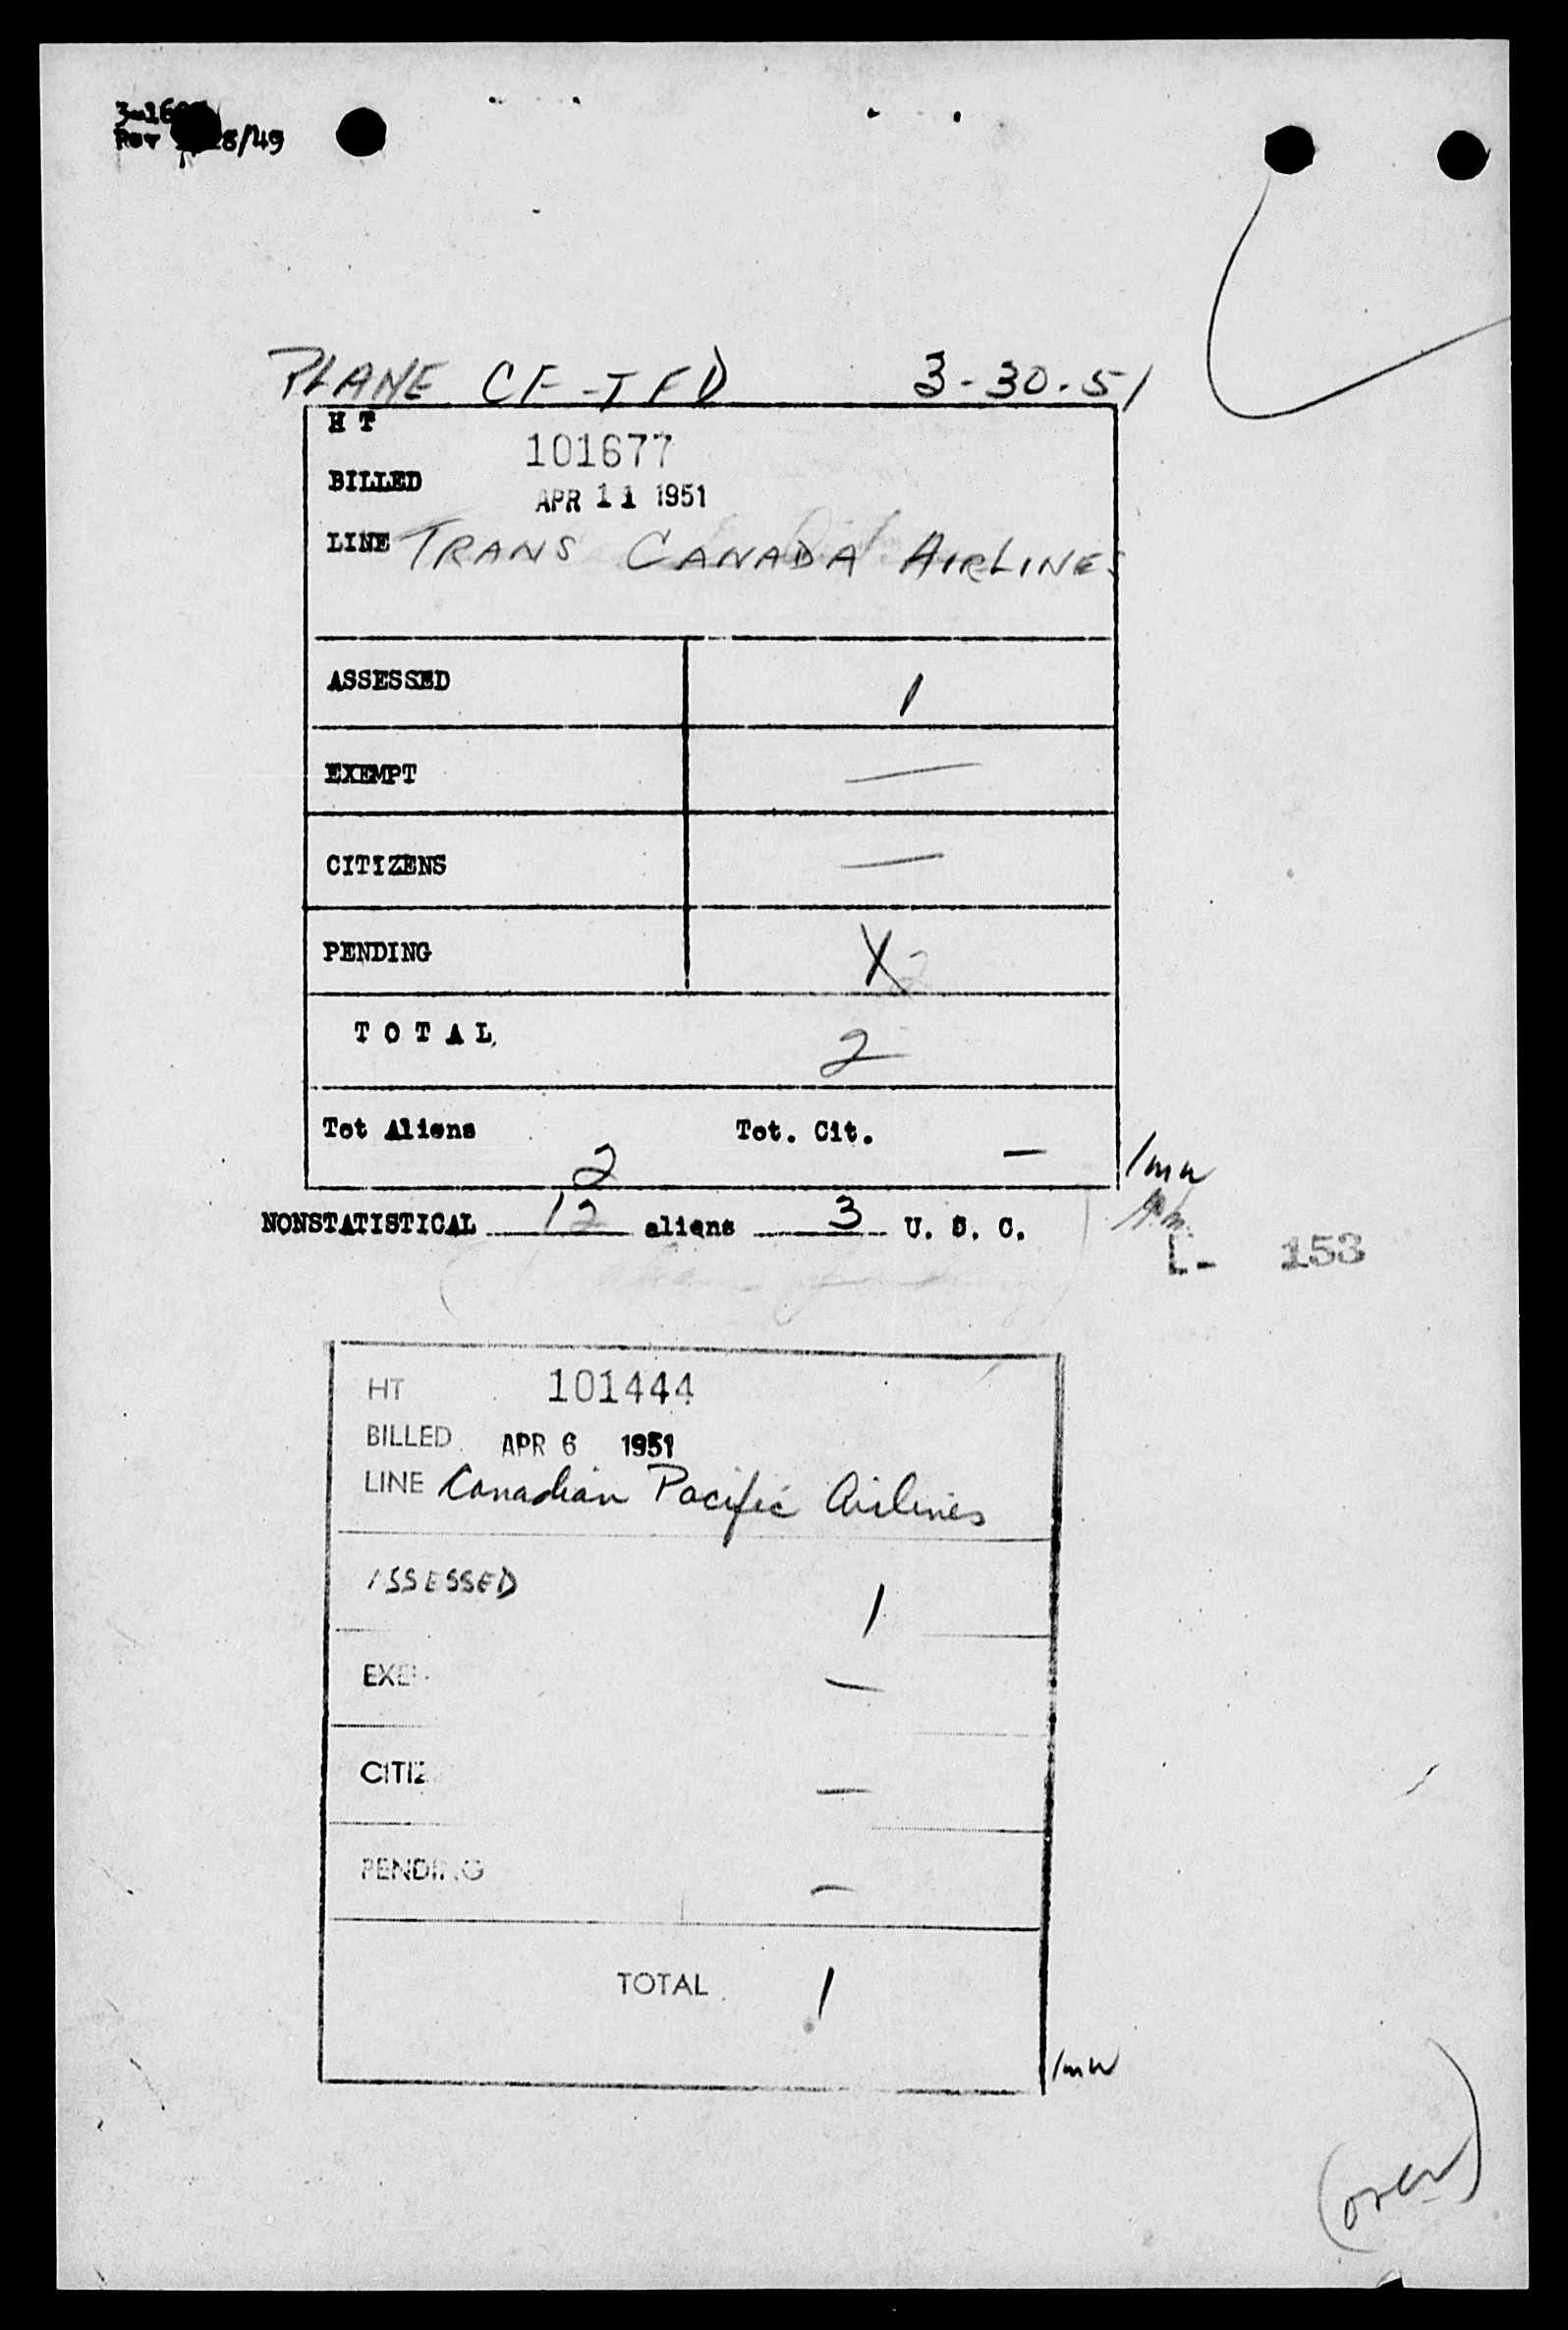 PLANE CF-TFD 3-30-51
H T 101677
BILLED APR 11 1951
LINE TRANS CANADA AIRLINES
ASSESSED 1
EXEMPT —
CITIZENS —
PENDING X 2
T O T A L 2
Tot Aliens 2 Tot. Cit. —
/mw
NONSTATISTICAL 12 aliens 3 U. S. C.
L- 153
HT 101444
BILLED APR 6 1951
LINE Canadian Pacific Airlines
ASSESSED 1
EXE —
CITIZ —
PENDING —
TOTAL 1
/mw
(over)